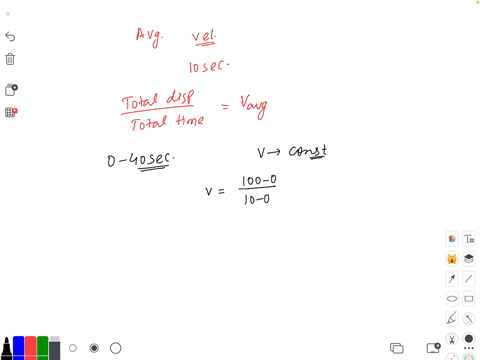 Avg. vel.
10 sec.
Total disp / Total time = Vavg
0-40 sec. V → const
v = 100-0 / 10-0